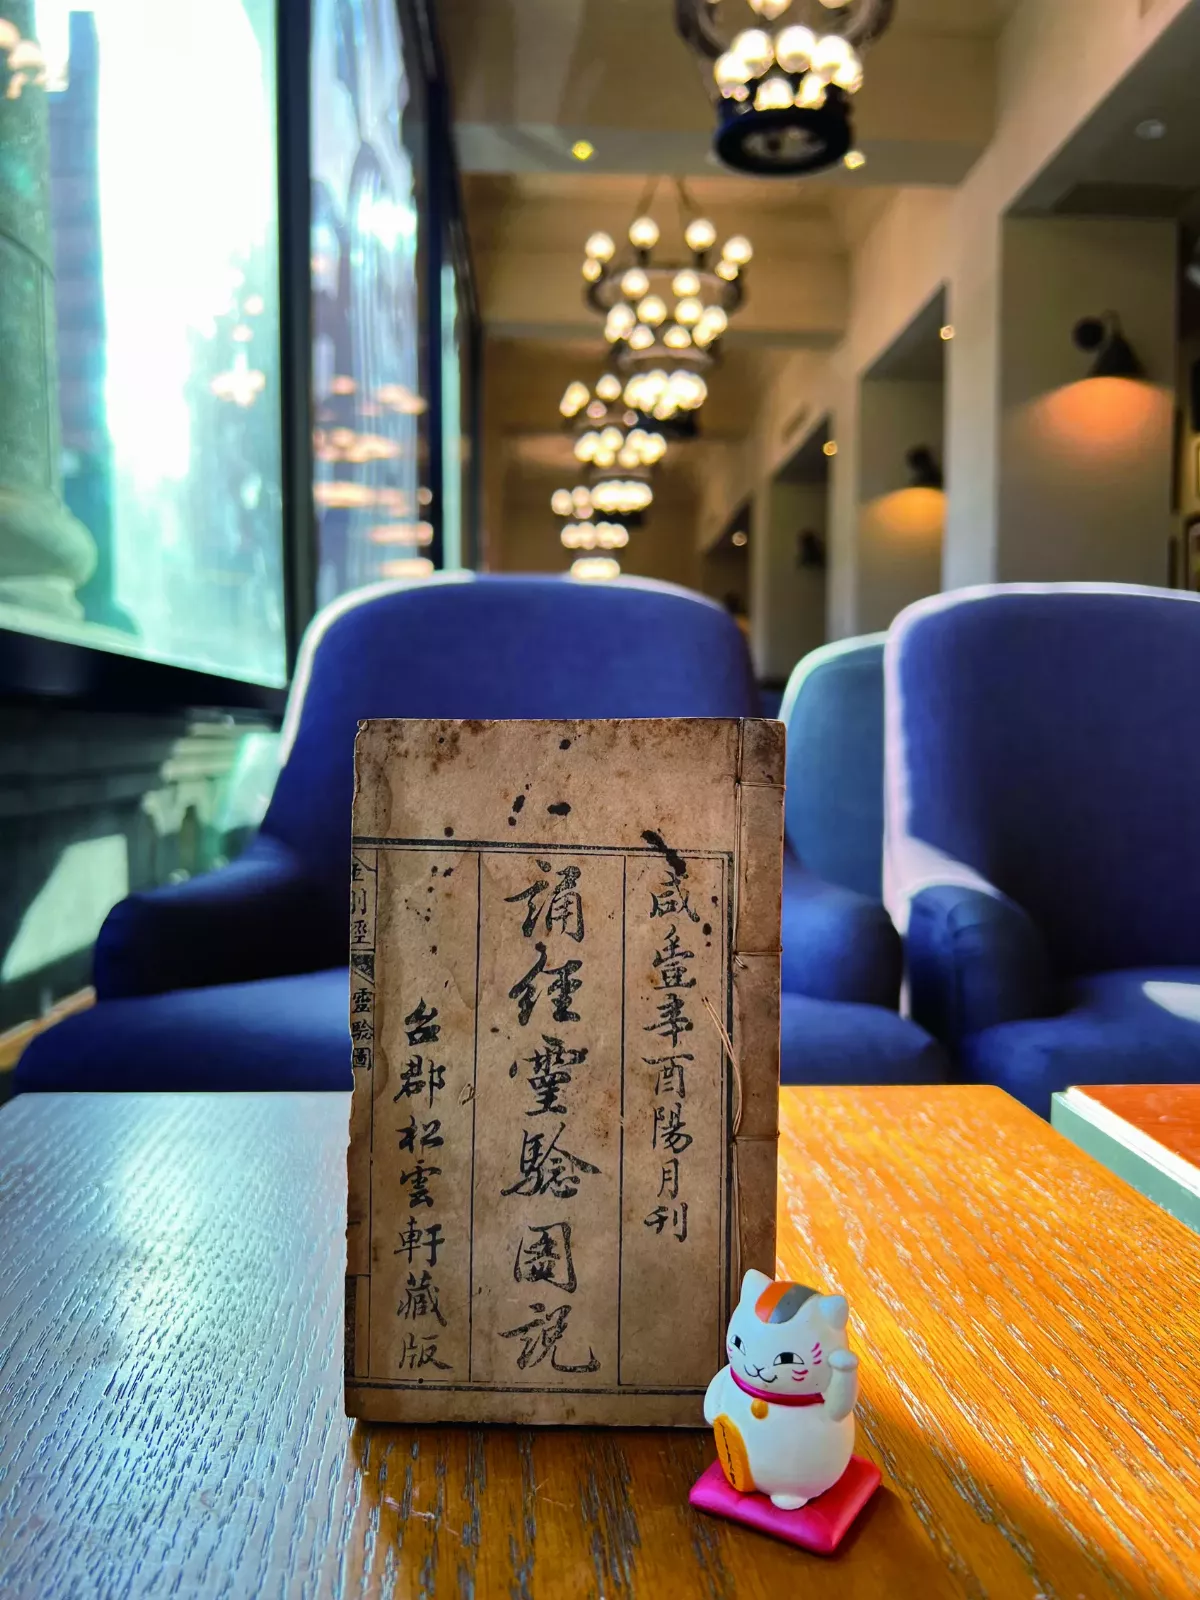 咸豊辛酉陽月刋
誦經靈驗圖説
台郡松雲軒藏版
靈驗圖